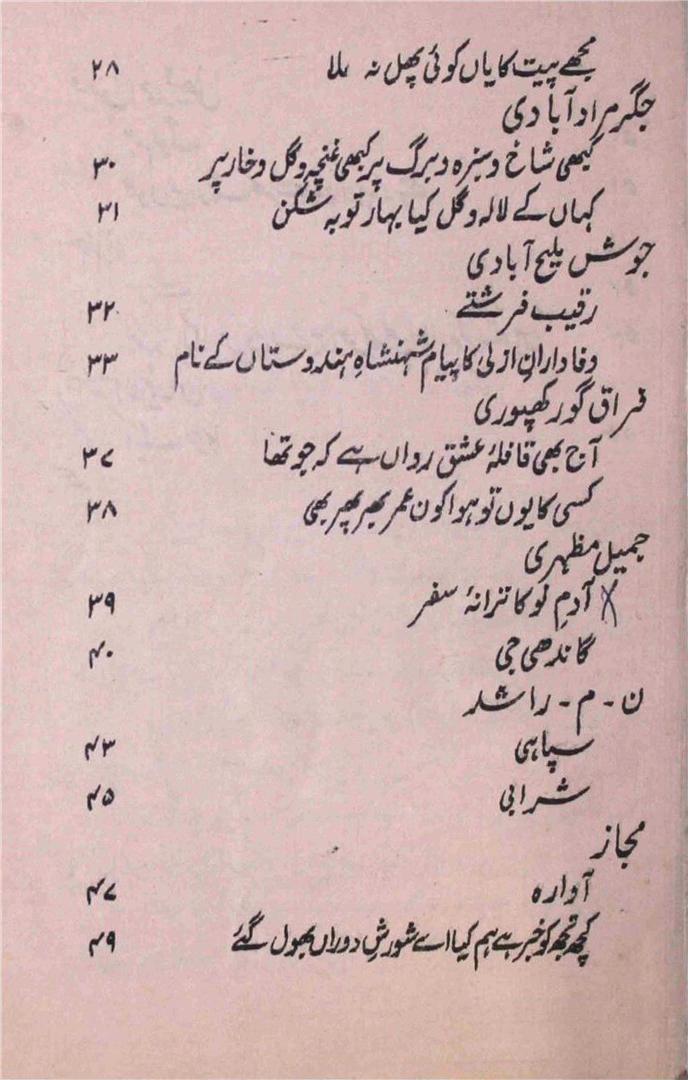 مجھے پیت کا یاں کوئی پھل نہ ملا ۲۸
جگر مراد آبادی
کبھی شاخ و سبزہ و برگ پر کبھی غنچہ و گل و خار پر ۳۰
کہاں کے لالہ و گل کیا بہار توبہ شکن ۳۱
جوش ملیح آبادی
رقیب فرشتے ۳۲
وفادارانِ ازلی کا پیام شہنشاہِ ہندوستاں کے نام ۳۳
فراق گورکھپوری
آج بھی قافلۂ عشق رواں ہے کہ جو تھا ۳۷
کسی کا یوں تو ہوا کون عمر بھر پھر بھی ۳۸
جمیل مظہری
آدمِ نو کا ترانۂ سفر ۳۹
گاندھی جی ۴۰
ن - م - راشد
سپاہی ۴۳
شرابی ۴۵
مجاز
آوارہ ۴۷
کچھ تجھ کو خبر ہے ہم کیا اے شورشِ دوراں بھول گئے ۴۹